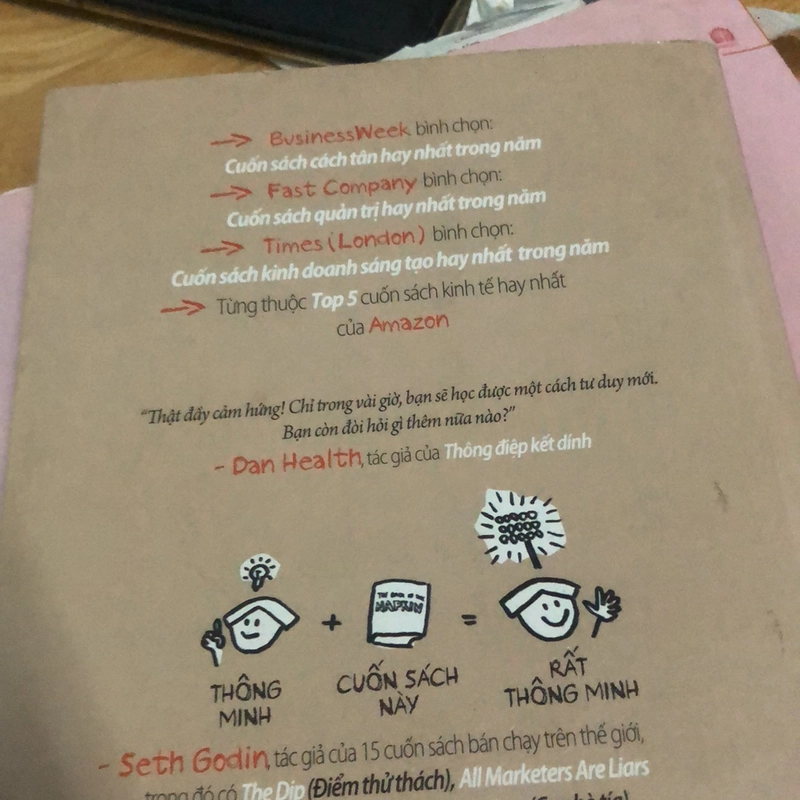 → BusinessWeek bình chọn:
Cuốn sách cách tân hay nhất trong năm
→ Fast Company bình chọn:
Cuốn sách quản trị hay nhất trong năm
→ Times (London) bình chọn:
Cuốn sách kinh doanh sáng tạo hay nhất trong năm
→ Từng thuộc Top 5 cuốn sách kinh tế hay nhất
của Amazon
“Thật đầy cảm hứng! Chỉ trong vài giờ, bạn sẽ học được một cách tư duy mới.
Bạn còn đòi hỏi gì thêm nữa nào?”
- Dan Health, tác giả của Thông điệp kết dính
THE BACK OF THE
NAPKIN
+ =
THÔNG
MINH
CUỐN SÁCH
NÀY
RẤT
THÔNG MINH
- Seth Godin, tác giả của 15 cuốn sách bán chạy trên thế giới,
trong đó có The Dip (Điểm thử thách), All Marketers Are Liars